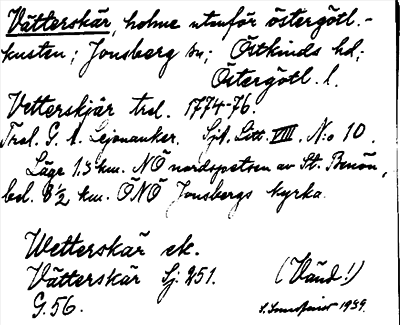 Vätterskär, holme utanför östergötl.-
kusten; Jonsberg sn; Östkinds hd;
Östergötl. l.
Vetterskjär trol. 1774-76.
Trol. G. A. Lejonanker. Sjk. Litt. VIII. N:o 10.
Läge 1.3 km. NÖ nordspetsen av St. Benön,
bel. 8½ km. ÖNÖ Jonsbergs kyrka.
Wetterskär ek.
Vätterskär Sj. 251. (Vänd!)
G. 56. 1939.